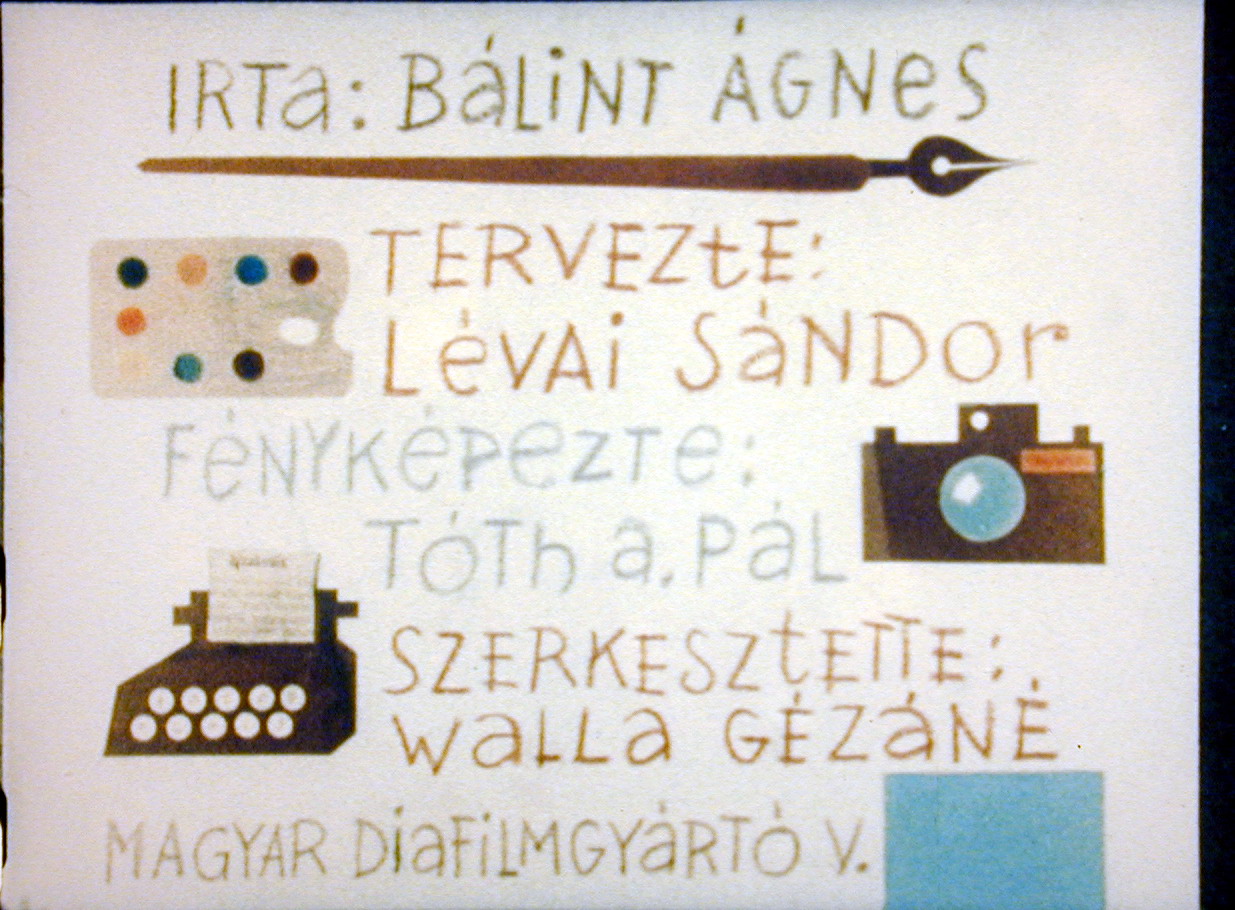 IRTa: BáLiNT ÁGNeS
TERVEZtE:
LéVAi SáNDOr
FéNYKéPeZTe:
TÓTh a. PáL
SZERKESZtETTE:
WaLLa GÉZáNÉ
MAGYAR DiaFiLMGYáRTÓ V.